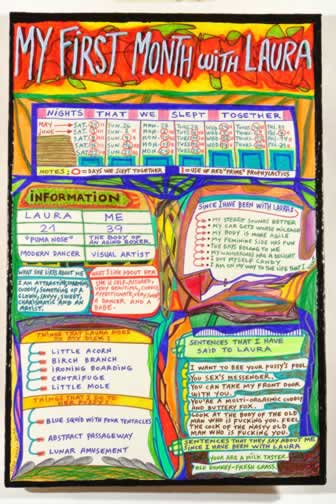 MY FIRST MONTH WITH LAURA
NIGHTS THAT WE SLEPT TOGETHER
MAY
JUNE
NOTES: O = DAYS WE SLEPT TOGETHER I = USE OF RED "PRIME" PROPHYLACTICS
INFORMATION
LAURA ME
21 39
"PUMA NOSE" THE BODY OF AN AGING BOXER
MODERN DANCER VISUAL ARTIST
WHAT SHE LIKES ABOUT ME
I AM ATTRACTIVE,
CUDDLY, SOMETHING OF A
CLOWN, SAVVY, SWEET,
CHARISMATIC AND AN
ARTIST.
WHAT I LIKE ABOUT HER
SHE IS SELF-ASSURED,
VERY BEAUTIFUL,
AFFECTIONATE, VERY
A DANCER AND A
BABE.
SINCE I HAVE BEEN WITH LAURA:
MY STEREO SOUNDS BETTER
MY CAR GETS MORE MILEAGE
MY BODY IS MORE AGILE
MY FEMININE SIDE HAS FUN
THE DAYS BELONG TO ME
MY WANDERINGS ARE A DELIGHT
I BUY MYSELF CANDY
I AM ON MY WAY TO THE LIFE THAT I
THINGS THAT LAURA DOES
TO MY DICK:
LITTLE ACORN
BIRCH BRANCH
IRONING BOARDING
CENTRIFUGE
LITTLE MOLE
THINGS THAT I DO TO
BLUE SQUID WITH FOUR TENTACLES
ABSTRACT PASSAGEWAY
LUNAR AMUSEMENT
SENTENCES THAT I HAVE
SAID TO LAURA
I WANT TO BE YOUR PUSSY'S FOOL
YOU SEX'S MESSENGER.
YOU CAN TAKE MY FRONT DOOR
WITH YOU.
YOU'RE A MULTI-ORGASMIC CUDDLY
AND BUTTERY FOX.
LOOK AT THE BODY OF THE OLD
MAN WHO IS FUCKING YOU. FEEL
THE COCK OF THE NASTY OLD
MAN WHO IS FUCKING YOU.
SENTENCES THAT THEY SAY ABOUT ME
SINCE I HAVE BEEN WITH LAURA
YOUR ARE A MILK TASTER
OLD DONKEY-FRESH GRASS.